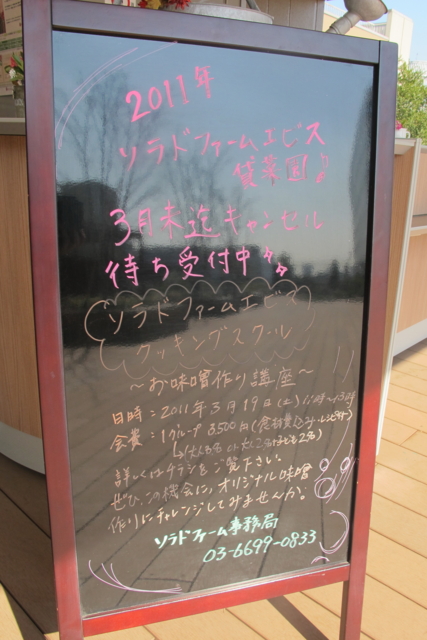 2011年
ソラドファームエビス
貸菜園♪
3月末迄キャンセル
待ち受付中
ソラドファームエビス
クッキングスクール
～お味噌作り講座～
日時：2011年3月19日(土)11時～13時
会費：1グループ 3,500円(食材費込み・レシピ付)
詳しくはチラシをご覧下さい。
ぜひ、この機会に、オリジナル味噌
作りにチャレンジしてみませんか。
ソラドファーム事務局
03-6699-0833